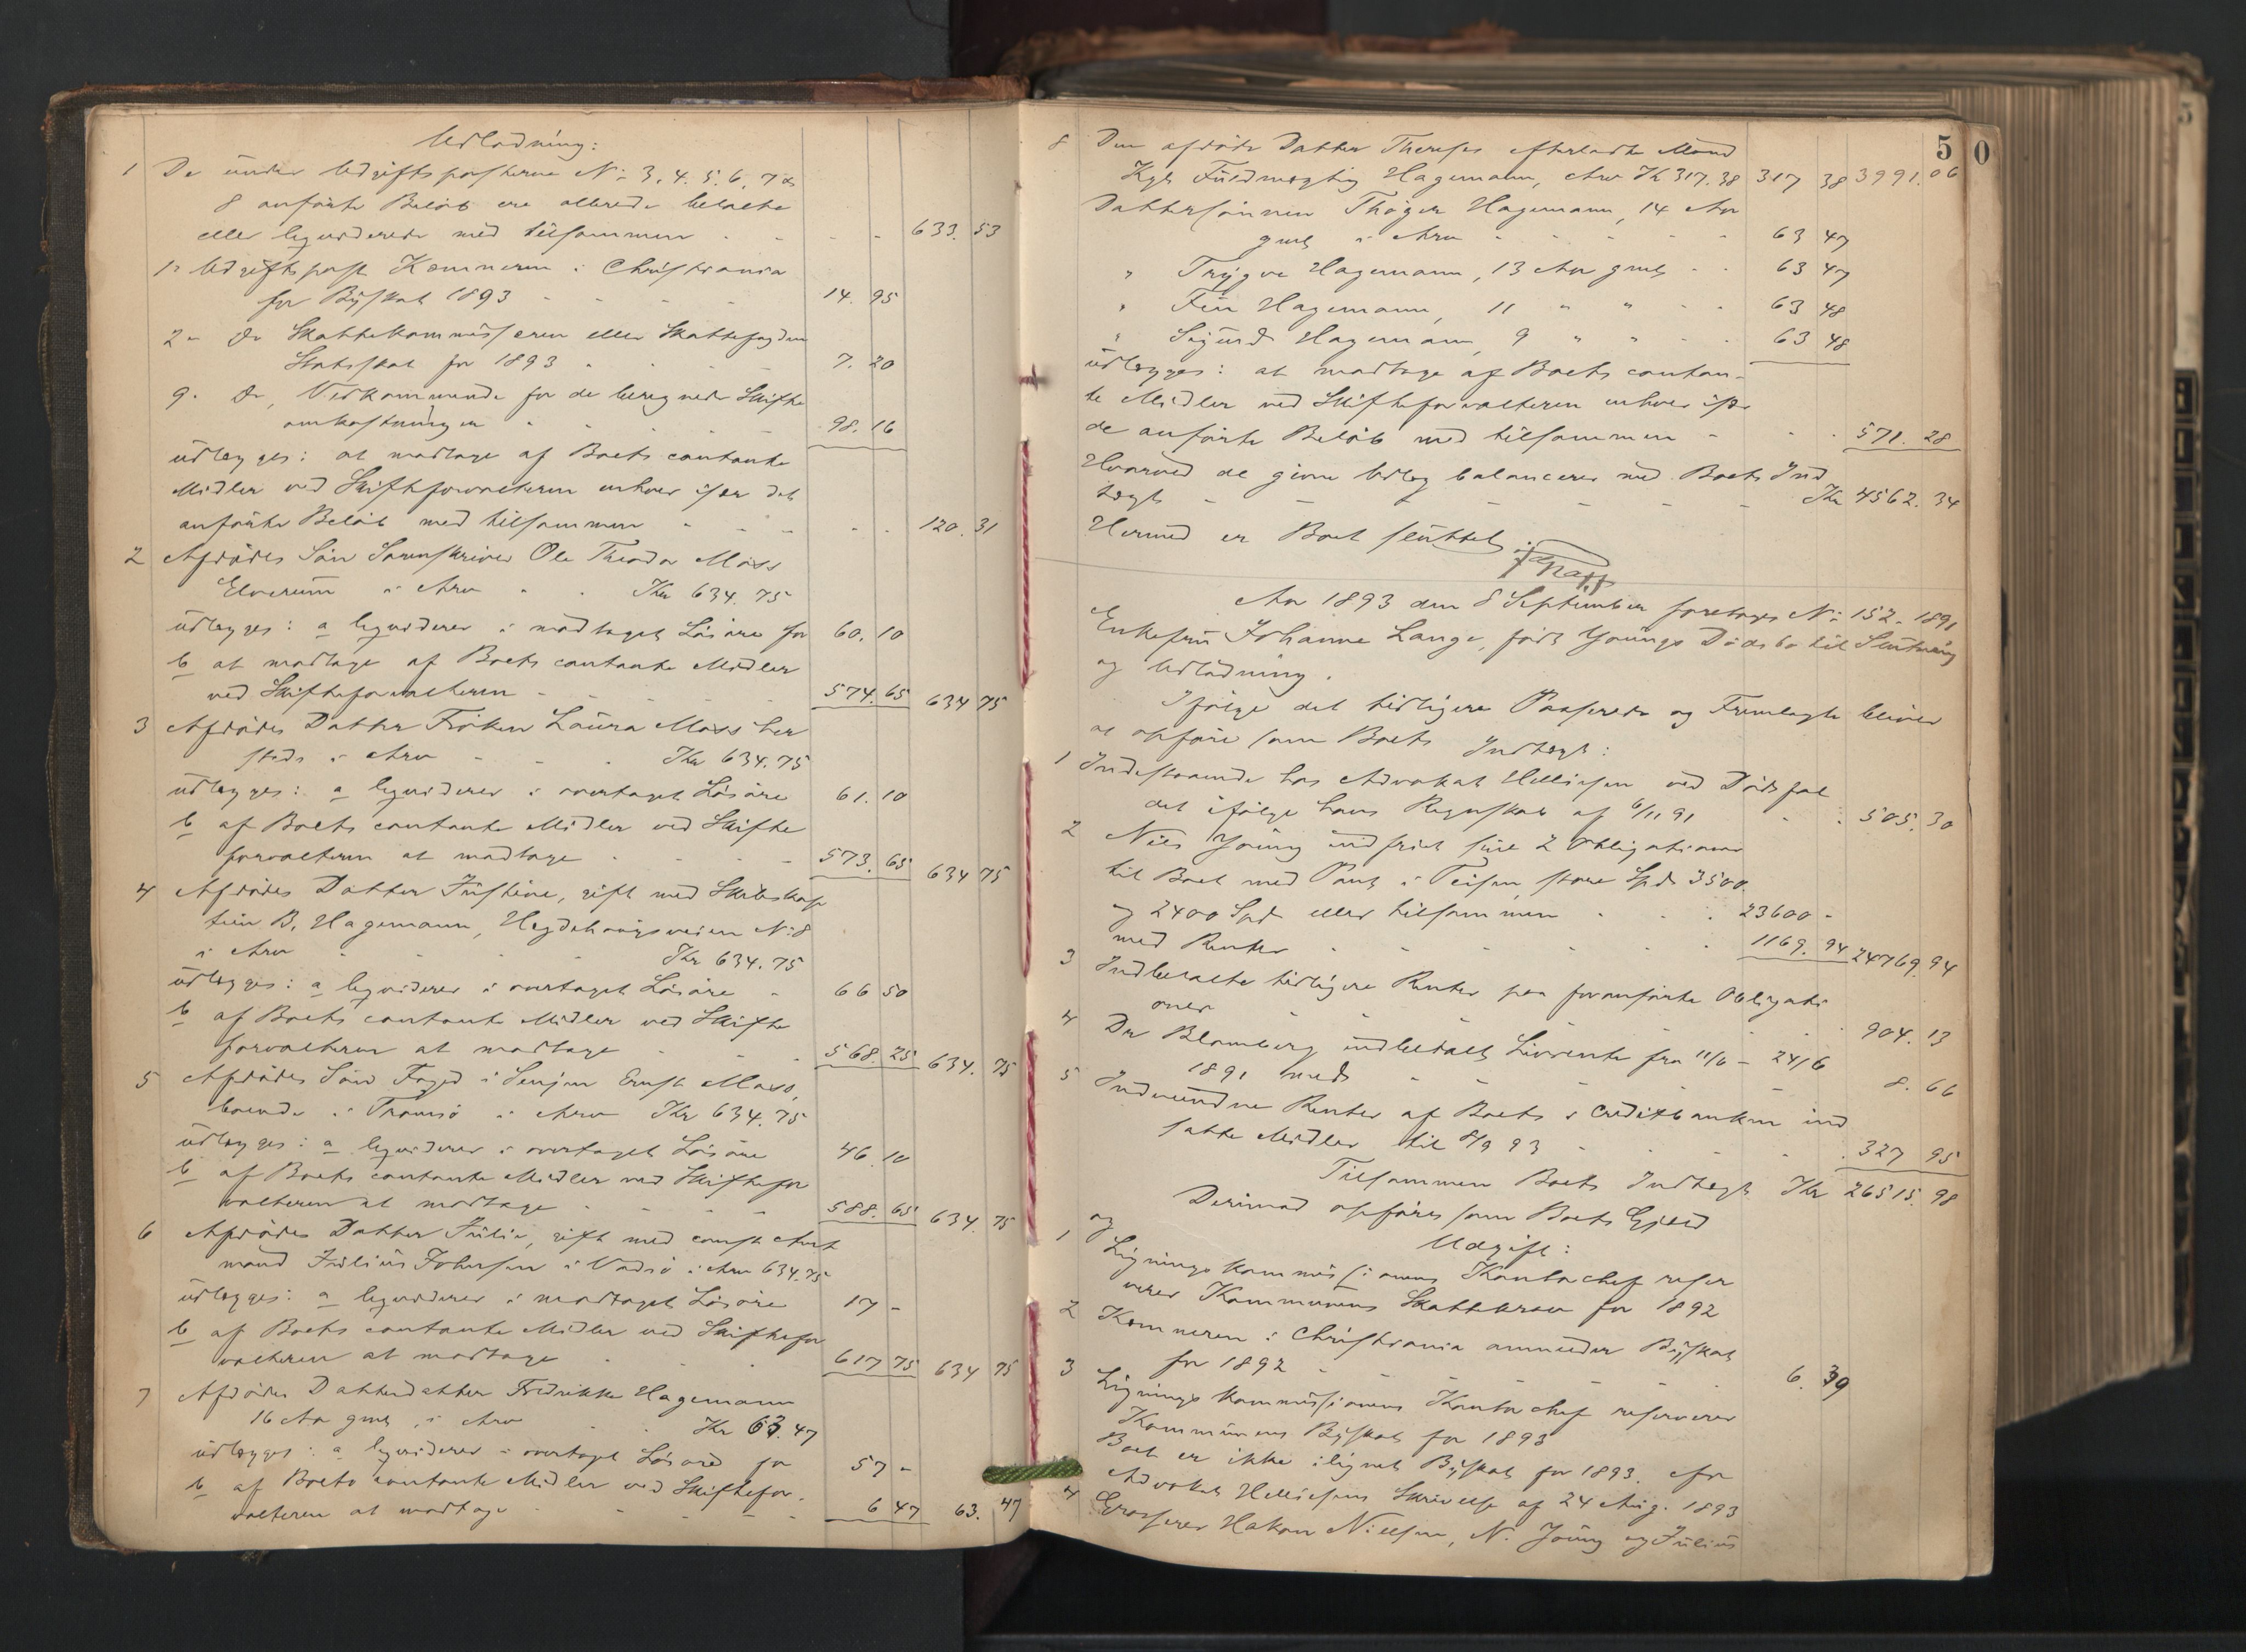 Udlodning:
1 De under Udgiftsposterne No 3, 4. 5. 6, 7 &
8 anførte Beløb ere allerede betalte
eller liqviderede med tilsammen - - - 633. 53
1= Udgiftspost Kæmneren i Christiania
for Byskat 1893 - - - 14. 95
2= Do Skattekommissæren eller Skattefogden
Statsskat for 1893 - - 7. 20
9. Do, Vedkommende for de beregnede Skifte
omkostninger - - - 98. 16
udlægges: at modtage af Boets contante
Midler ved Skifteforvalteren enhver især det
anførte Beløb med tilsammen - - - 120. 31
2 Afdødes Søn Sorenskriver Ole Theodor Moss
Elverum i Arv - - Kr 634. 75
udlægges: a liqviderer i modtaget Løsøre for 60. 10
b at modtage af Boets contante Midler
ved Skifteforvalteren - - - 574. 65 634 75
3 Afdødes Datter Frøken Laura Moss her
steds i Arv - - Kr 634. 75
udlægges: a liqviderer i overtaget Løsøre 61. 10
b af Boets contante Midler ved Skifte
forvalteren at modtage - - - 573. 65 634 75
4 Afdødes Datter Justine, gift med Skibskap
tein B. Hagemann, Hegdehaugsveien No 8
i Arv - - - Kr 634. 75
udlægges: a liqviderer i overtaget Løsøre - 66 50
b af Boets contante Midler ved Skifte
forvalteren at modtage - - - 568. 25 634. 75
5 Afdødes Søn Foged i Senjen Ernst Moss,
boende i Tromsø i Arv Kr 634. 75
udlægges: a liqviderer i overtaget Løsøre 46. 10
b af Boets contante Midler ved Skiftefor
valteren at modtage - - - 588. 65 634. 75
6 Afdødes Datter Julie, gift med const Amt
mand Julius Johansen i Vadsø i Arv 634. 75
udlægges: a liqviderer i modtaget Løsøre 17 -
b af Boets contante Midler ved Skiftefor
valteren at modtage - - - 617 75 634 75
7 Afdødes Datterdatter Fredrikke Hagemann
16 Aar gml, i Arv - - Kr 63. 47
udlægges: a liqviderer i overtaget Løsøre for 57 -
b af Boets contante Midler ved Skiftefor-
valteren at modtage - - - 6 47 63. 47
50
8 Den afdøde Datter Thereses efterladte Mand
Kgl Fuldmægtig Hagemann, Arv Kr 317. 38 317 38 3991. 06
Dattersønnen Thøger Hagemann, 14 Aar
gml i Arv - - - 63 47
" Trygve Hagemann, 13 Aar gml - - 63 47
" Finn Hagemann, 11 " " - - 63 48
" Sigurd Hagemann, 9 " " - - 63 48
udlægges: at modtage af Boets contan-
te Midler ved Skifteforvalteren enhver især
de anførte Beløb med tilsammen - - - 571. 28
Hvorved de givne Udlæg balancerer med Boets Ind
tægt - - - - Kr 4562. 34
Hermed er Boet sluttet.
Aar 1893 den 8 September foretoges No 152. 1891
Enkefru Johanne Lange, født Youngs Dødsbo til Slutning
og Udlodning.
Ifølge det tidligere Passerede og Fremlagte bliver
at opføre som Boets Indtægt:
1 Indestaaende hos Advokat Helliesen ved Dødsfal
det ifølge hans Regnskab af 6/11 91 - - 505. 30
2 Niels Young indfriet sine 2 Obligationer
til Boet med Pant i Teisen, store Spd 3500.
og 2400 Spd eller tilsammen - - - 23600 -
med Renter - - - - 1169. 94 24769. 94
3 Indbetalte tidligere Renter paa foranførte Obligati
oner - - - - - 904. 13
4 Dr Blomberg indbetalt Livrente fra 11/6 - 24/6
1891 med - - - - 8. 66
5 Indvundne Renter af Boets i Creditbanken ind
satte Midler til 8/9 93 - - - 327 95
Tilsammen Boets Indtægt Kr 26515. 98
Derimod opføres som Boets Gjæld
og
Udgift:
1 Ligningskommissionens Kontorchef reser
verer Kommunens Skattekrav for 1892
2 Kæmneren i Christiania anmelder Byskat
for 1892 - - - - 6. 39
3 Ligningskommissionens Kontorchef reserverer
Kommunens Byskat for 1893
Boet er ikke ilignet Byskat for 1893. cfr
Advokat Helliesens Skrivelse af 24 Aug. 1893
4 Grosserer Hakon Nielsen, N. Young og Julius